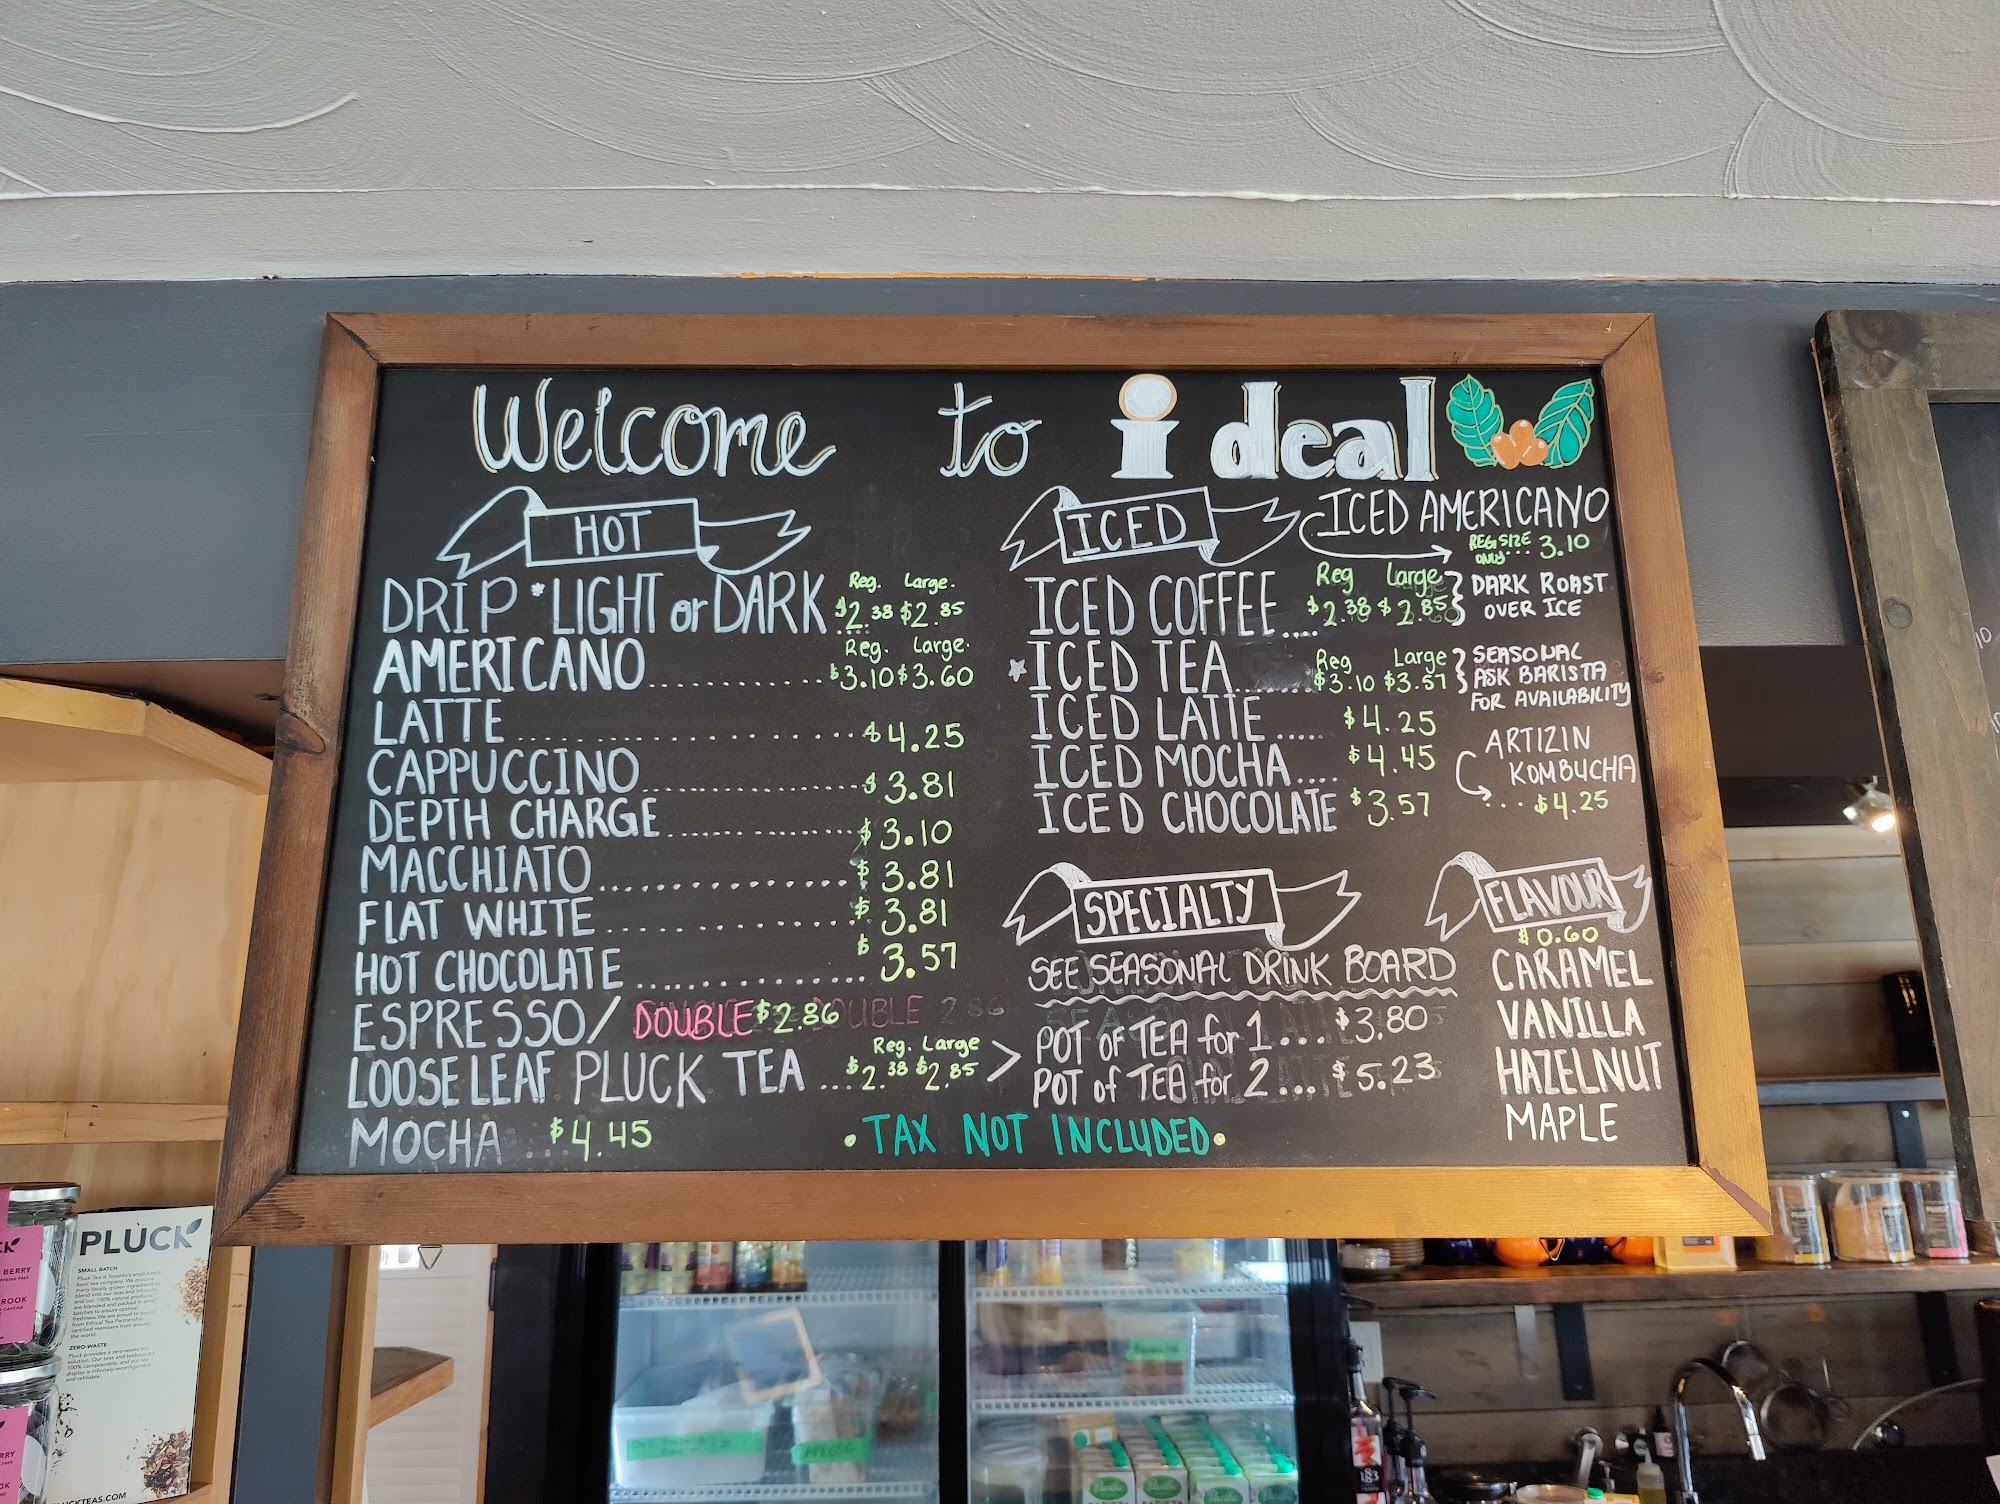 Welcome to ideal
HOT
Reg. Large.
DRIP *LIGHT or DARK $2.38 $2.85
Reg. Large.
AMERICANO.................$3.10 $3.60
LATTE..............................$4.25
CAPPUCCINO....................$3.81
DEPTH CHARGE.................$3.10
MACCHIATO......................$3.81
FLAT WHITE......................$3.81
HOT CHOCOLATE.................$3.57
ESPRESSO/ DOUBLE $2.86
Reg. Large
LOOSE LEAF PLUCK TEA ...$2.38 $2.85 >
MOCHA ... $4.45
ICED
ICED AMERICANO
REG SIZE ONLY... 3.10
Reg Large
ICED COFFEE.... $2.38 $2.85
DARK ROAST
OVER ICE
Reg Large
*ICED TEA........$3.10 $3.57
SEASONAL
ASK BARISTA
FOR AVAILABILITY
ICED LATTE..... $4.25
ICED MOCHA.... $4.45
ICED CHOCOLATE $3.57
ARTIZIN
KOMBUCHA
... $4.25
SPECIALTY
SEE SEASONAL DRINK BOARD
POT OF TEA for 1... $3.80
POT of TEA for 2... $5.23
FLAVOUR
$0.60
CARAMEL
VANILLA
HAZELNUT
MAPLE
• TAX NOT INCLUDED •
PLUCK
SMALL BATCH
ZERO-WASTE
BERRY